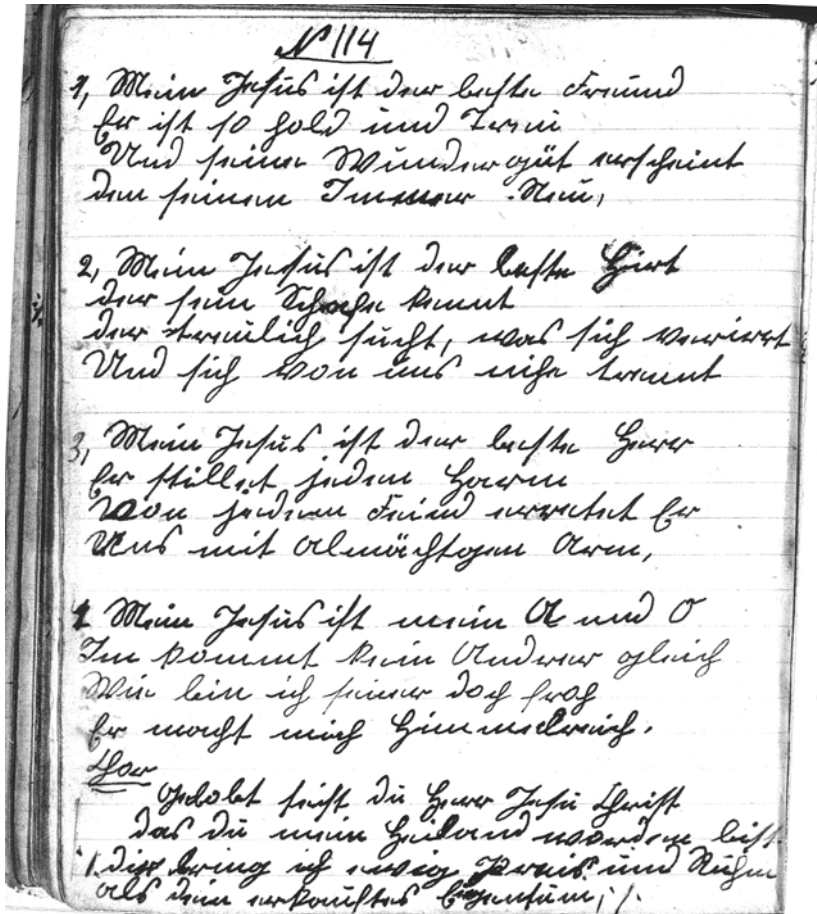 N 114
1, Mein Jesus ist der beste Freund
Er ist so hold und Treu
Und seine Wundergüt erscheint
den seinen Immer Neu,
2, Mein Jesus ist der beste Hirt
der sein Schafe kennt
der treulich sucht, was sich verirrt
Und sich von uns nihe trennt
3, Mein Jesus ist der beste Herr
Er stillet jeden Harm
Von jedem Feind erretet Er
Uns mit Almächtgen Arm,
4 Mein Jesus ist mein A und O
Im kommt kein Andrer gleich
Wie bin ich seiner doch froh
Er macht mich Himmelreich.
Chor
Gelobt seist du Herr Jesu Christ
das du mein Heiland worden bist
/: dir bring ich ewig Preis und Ruhm
als dein erkauftes Eigentum, :/